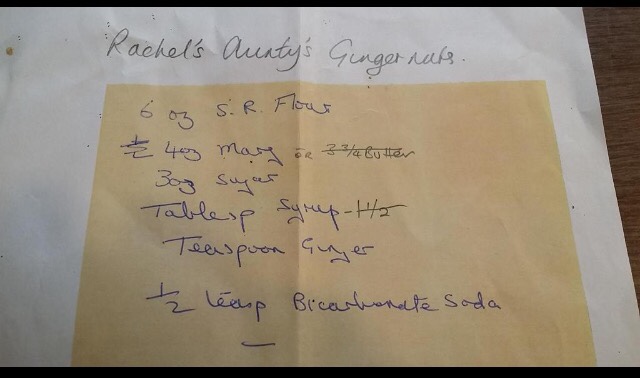 Rachel's Aunty's Gingernuts.
6 oz S.R. Flour
½ 4oz Marg OR 3 3/4 Butter
3oz Sugar
Tablesp Syrup - 1 1/2
Teaspoon Ginger
½ teasp Bicarbonate Soda